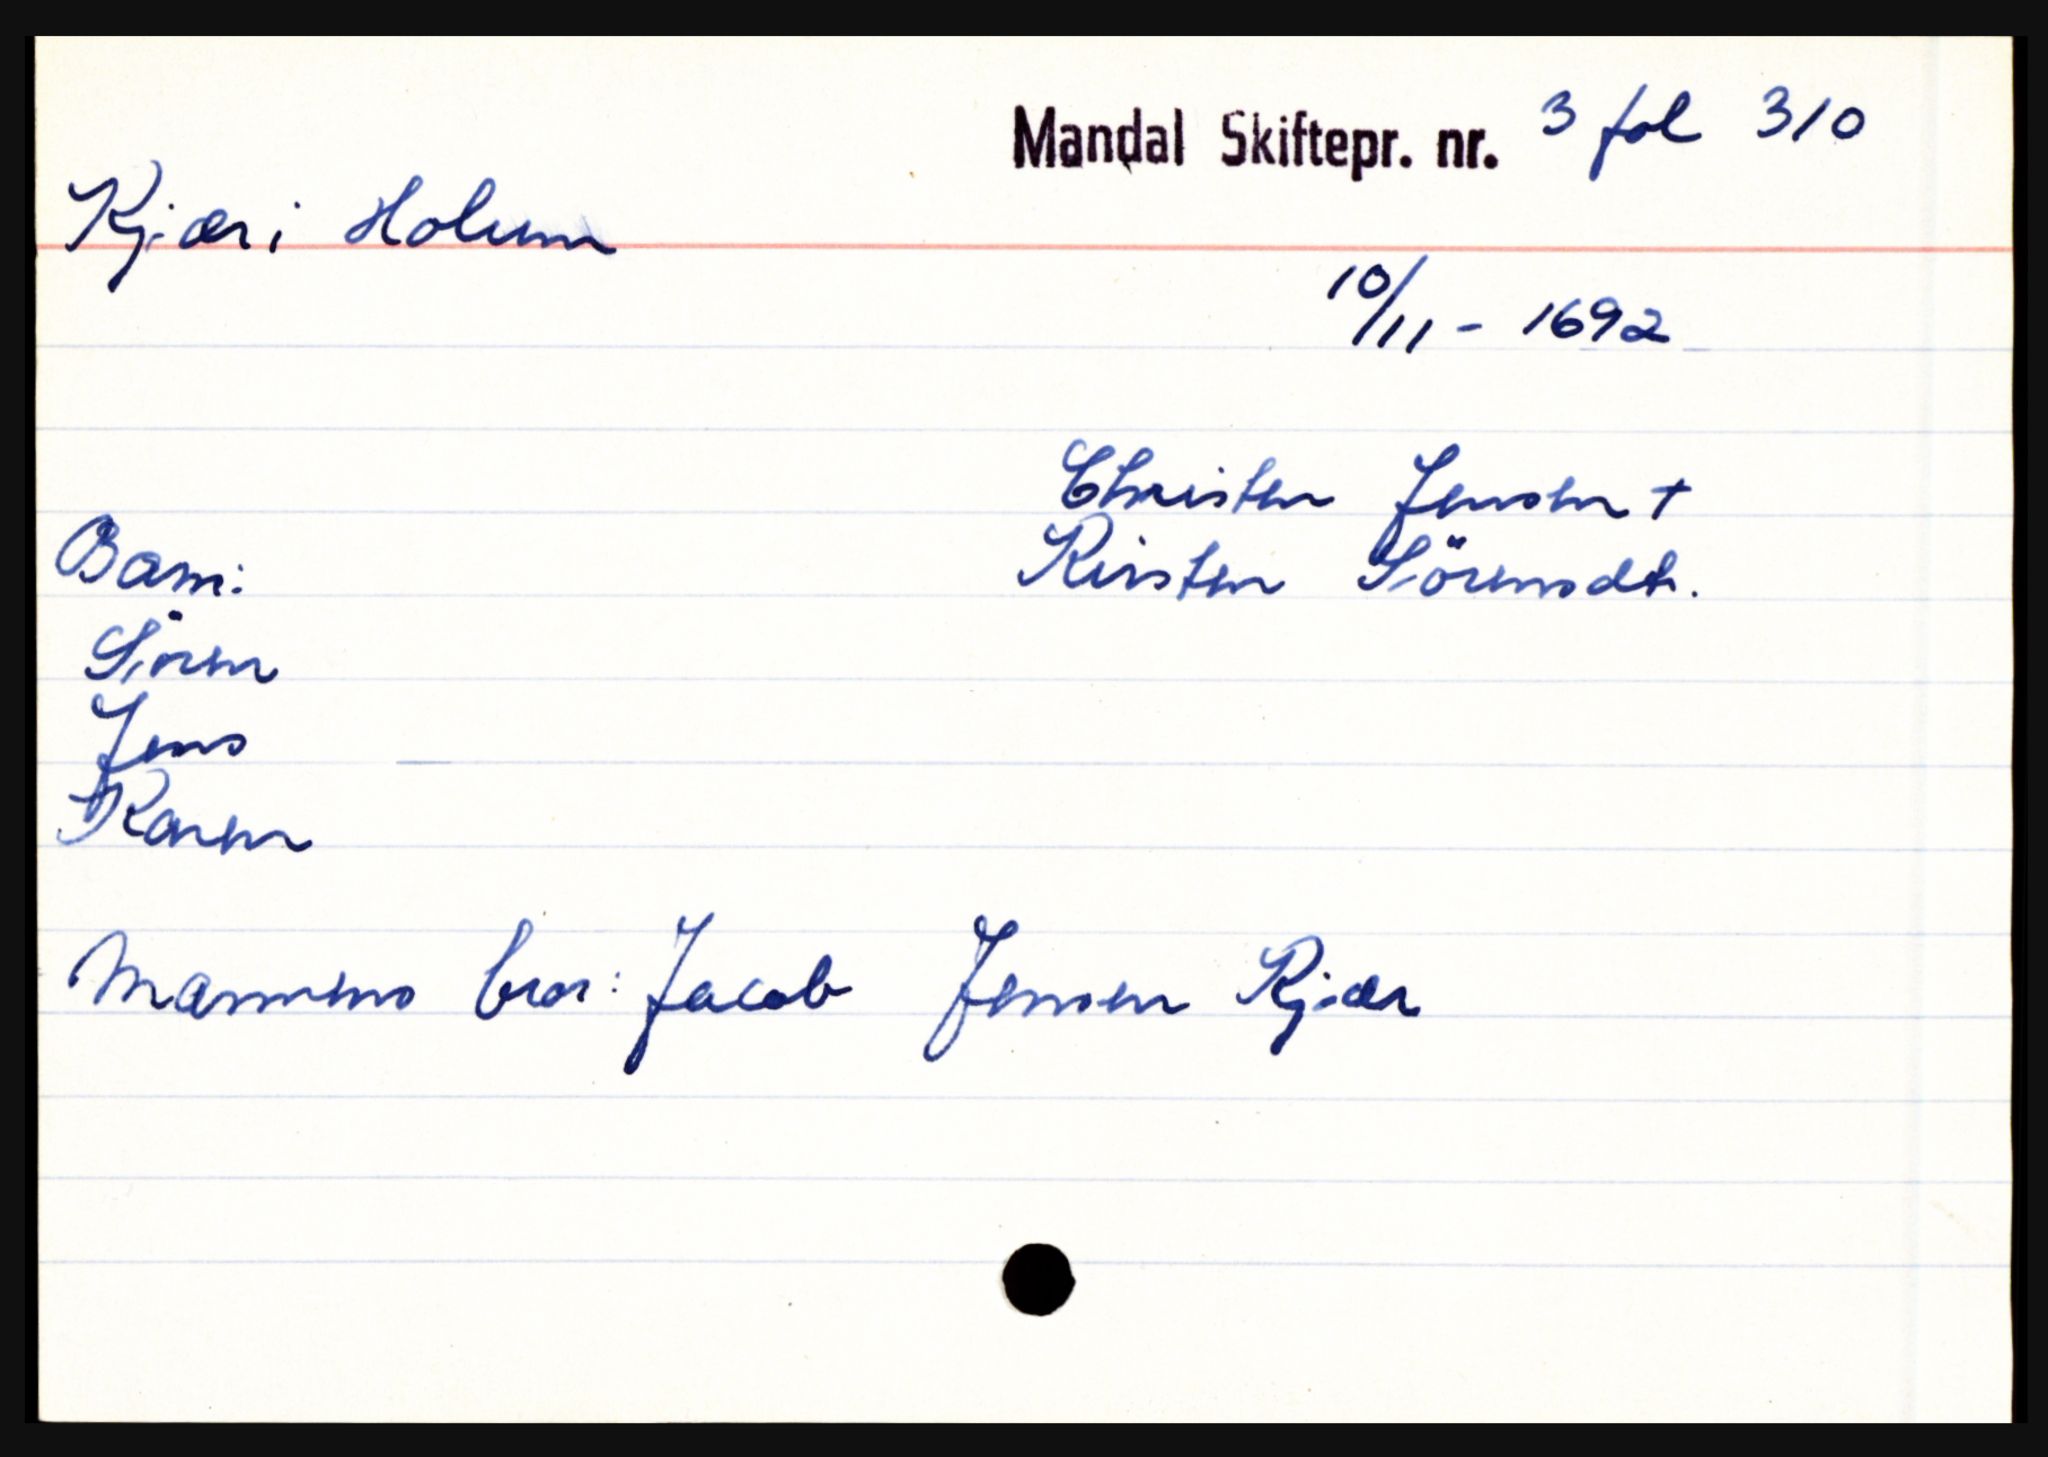 Mandal Skiftepr. nr. 3 fol 310
Kjær i Holum
10/11 - 1692
Christen Jensen +
Kirsten Sörensdtr.
Barn:
Sören
Jens
Karen
Mannens bror: Jacob Jensen Kjær